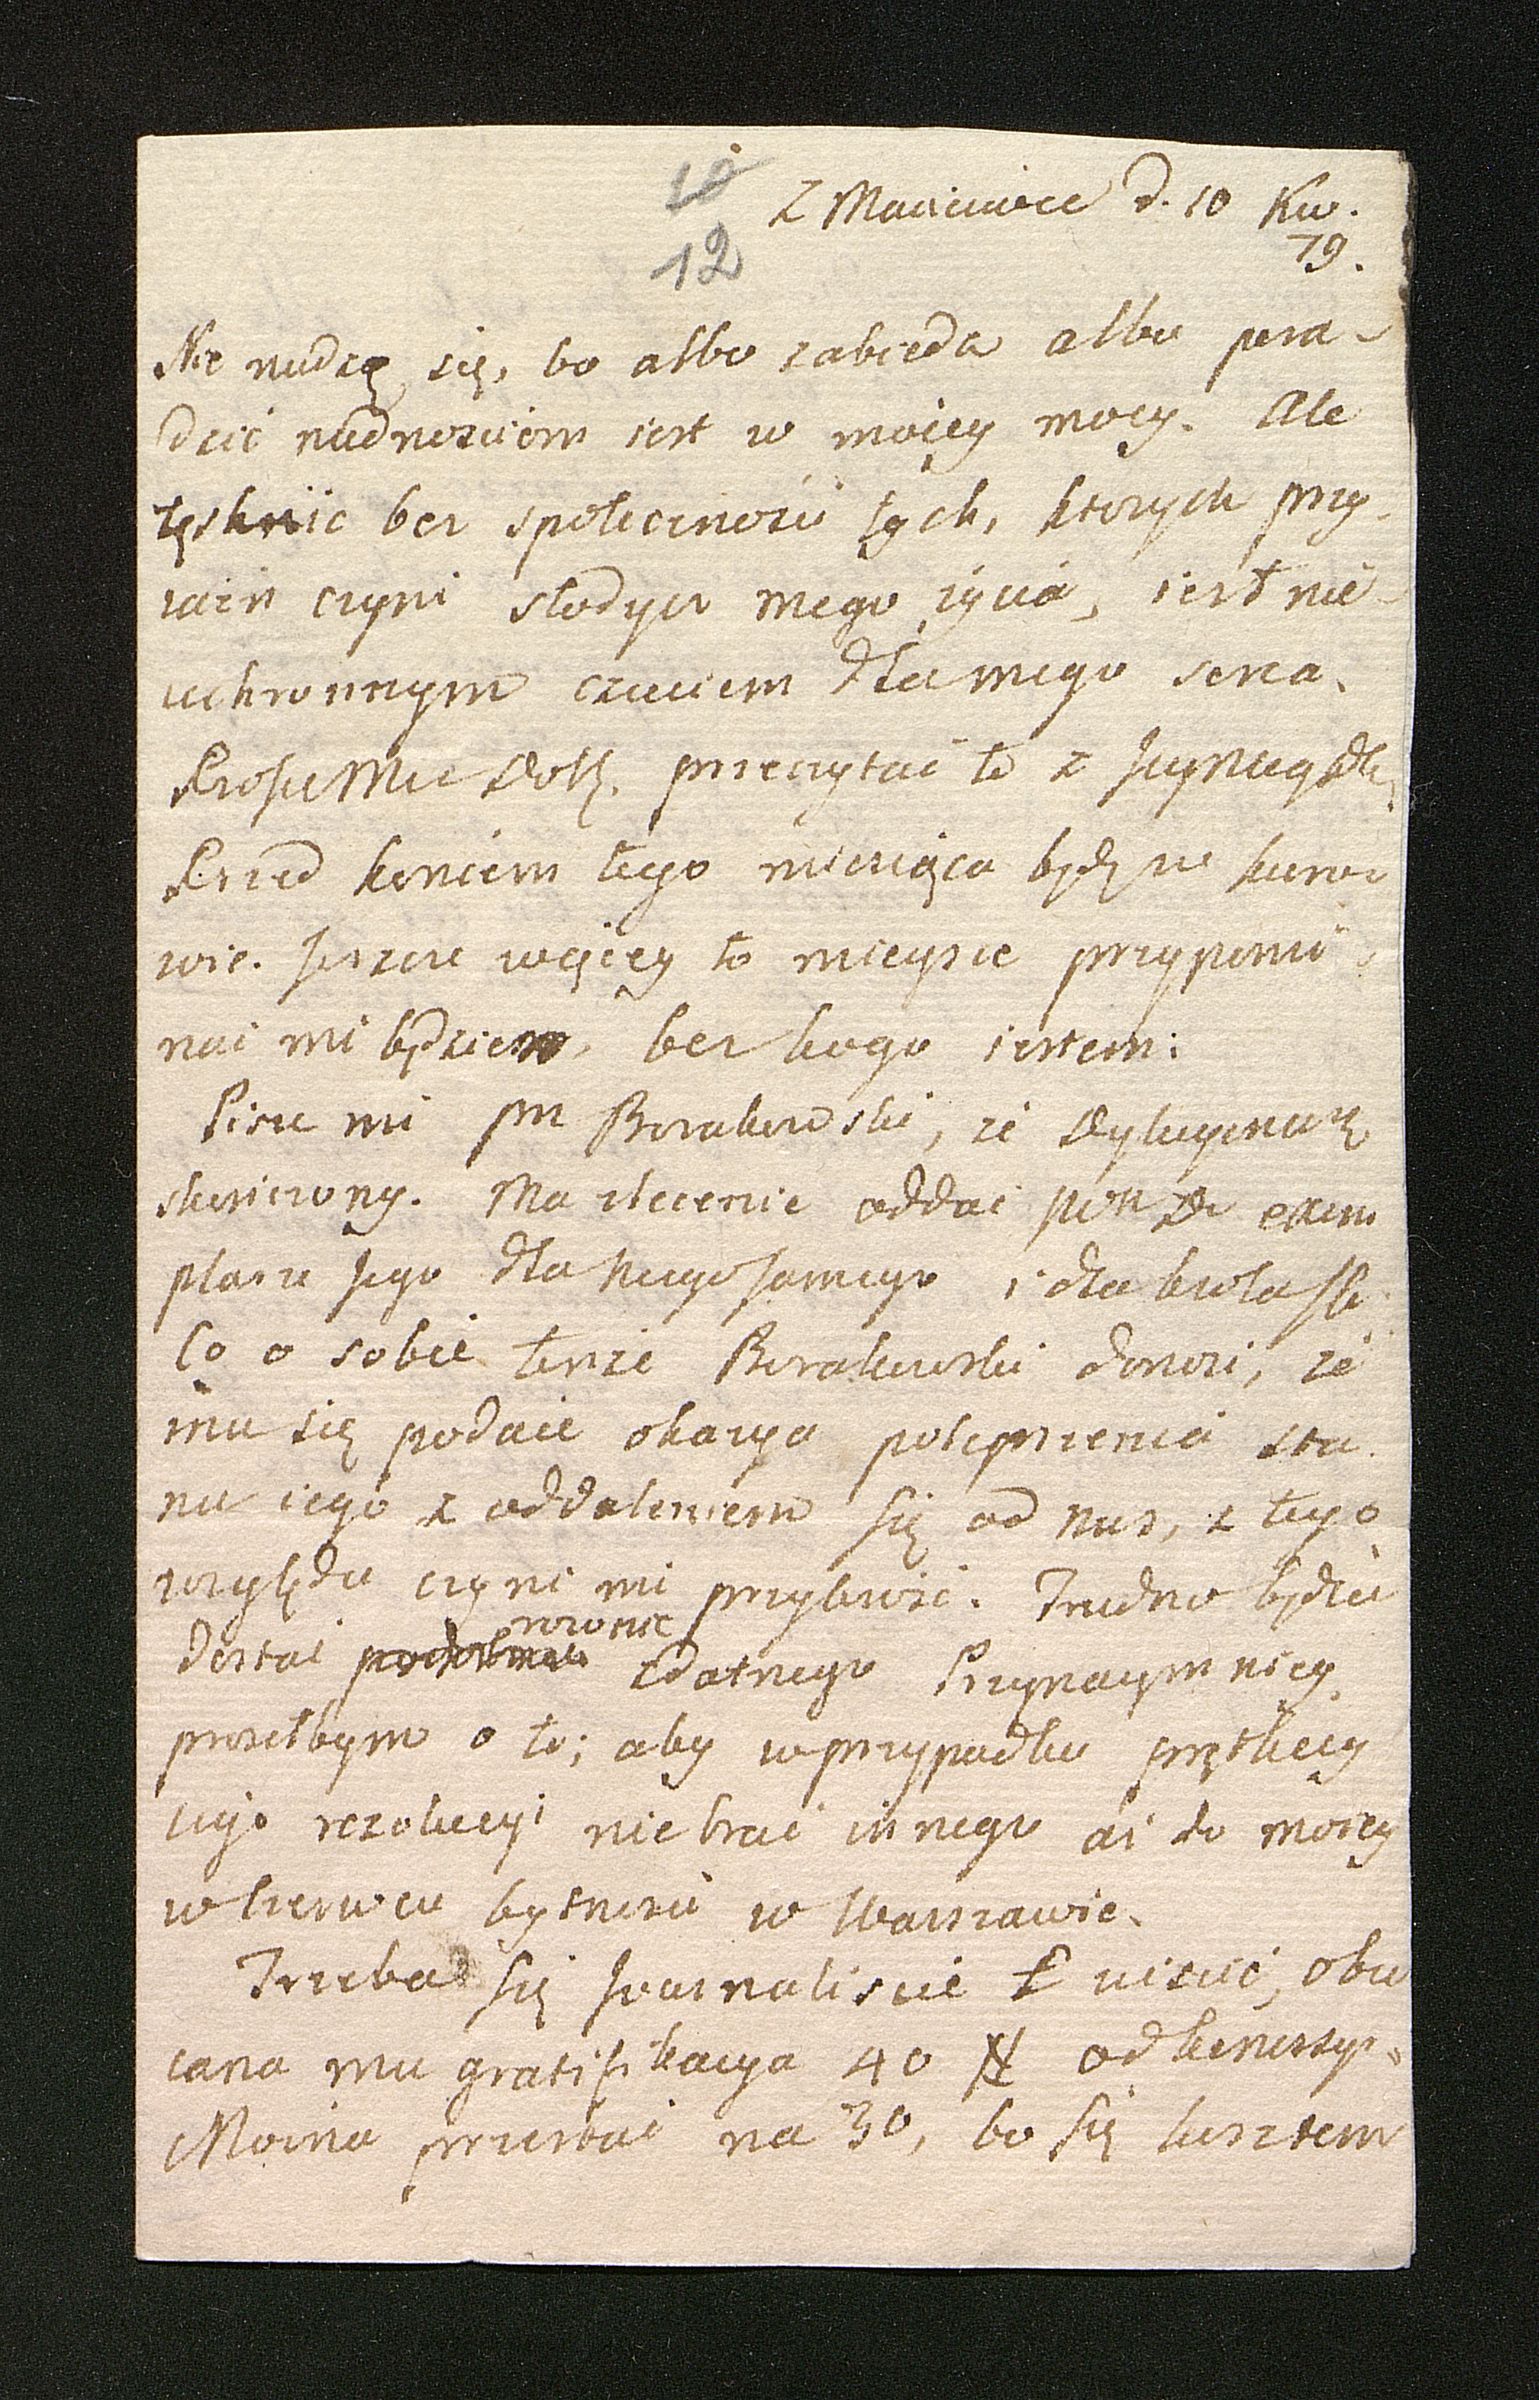 10
12
Z Macieiowic d. 10 Kw.
79.
Nie nudzę się, bo albo zabieda albo pora-
dzić nudnościom iest w moięy mocy. Ale
tęsknić bez społeczności tych, których przy-
iaźń czyni słodycz mego życia, iest nie-
uchronnym czuciem dla mego serca.
Proszę przeczytać to z
Przed końcem tego miesiąca będę w Kuro-
wie. Jeszcze więcey to mieysce przypomi-
nać mi będzie, bez kogo iestem:
Pisze mi pn Borakowski, że Dykcyonarz
skończony. Ma zlecenie oddać exem
plarze Jego dla niego samego i dla krola
Co o sobie tenże Borakowski donosi, że
mu się podaie okazya polepszenia sta-
nu iego z oddaleniem się od nas, z tego
względu czyni mi przykrość. Trudno będzie
dostać rownie zdatnego Przynaymniey
prosiłbym o to; aby w przypadku prętkiey
iego rezolucyi nie brać innego aż do moiey
w Czerwcu bytności w Warszawie.
Trzeba się Jurnaliście uiścić, obie
cana mu gratifikacya 40 # od
Można przestać na 30, bo się kosztem